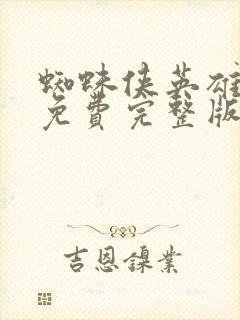 蜘蛛侠英雄
免費完整版
吉恩鎳業